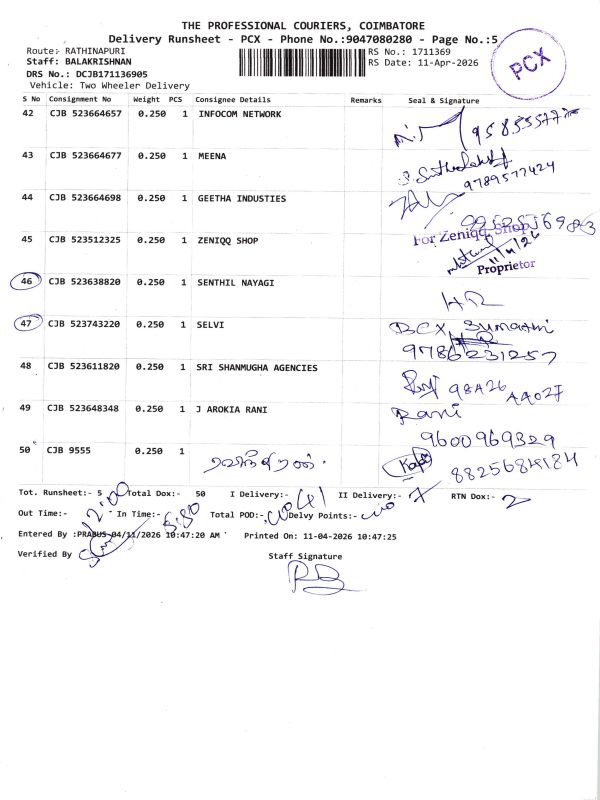 THE PROFESSIONAL COURIERS, COIMBATORE
Delivery Runsheet - PCX - Phone No.:9047080280 - Page No.:5
Route:- RATHINAPURI
RS No.: 1711369
Staff: BALAKRISHNAN
RS Date: 11-Apr-2026
DRS No.: DCJB171136905
Vehicle: Two Wheeler Delivery
PCX
S No Consignment No Weight PCS Consignee Details Remarks Seal & Signature
42 CJB 523664657 0.250 1 INFOCOM NETWORK
43 CJB 523664677 0.250 1 MEENA
9789577424
44 CJB 523664698 0.250 1 GEETHA INDUSTIES
45 CJB 523512325 0.250 1 ZENIQQ SHOP
For Zeniqq Shop
11/4/26
Proprietor
46 CJB 523638820 0.250 1 SENTHIL NAYAGI
HR
47 CJB 523743220 0.250 1 SELVI
9786231257
48 CJB 523611820 0.250 1 SRI SHANMUGHA AGENCIES
49 CJB 523648348 0.250 1 J AROKIA RANI
Rani
9600969329
50 CJB 9555 0.250 1
8825684184
Tot. Runsheet:- 5 Total Dox:- 50 I Delivery:- 41 II Delivery:- 7 RTN Dox:- 2
Out Time:- 12:00 In Time:- Total POD:- Delvy Points:-
Entered By :PRABUS-04/11/2026 10:47:20 AM Printed On: 11-04-2026 10:47:25
Verified By
Staff Signature